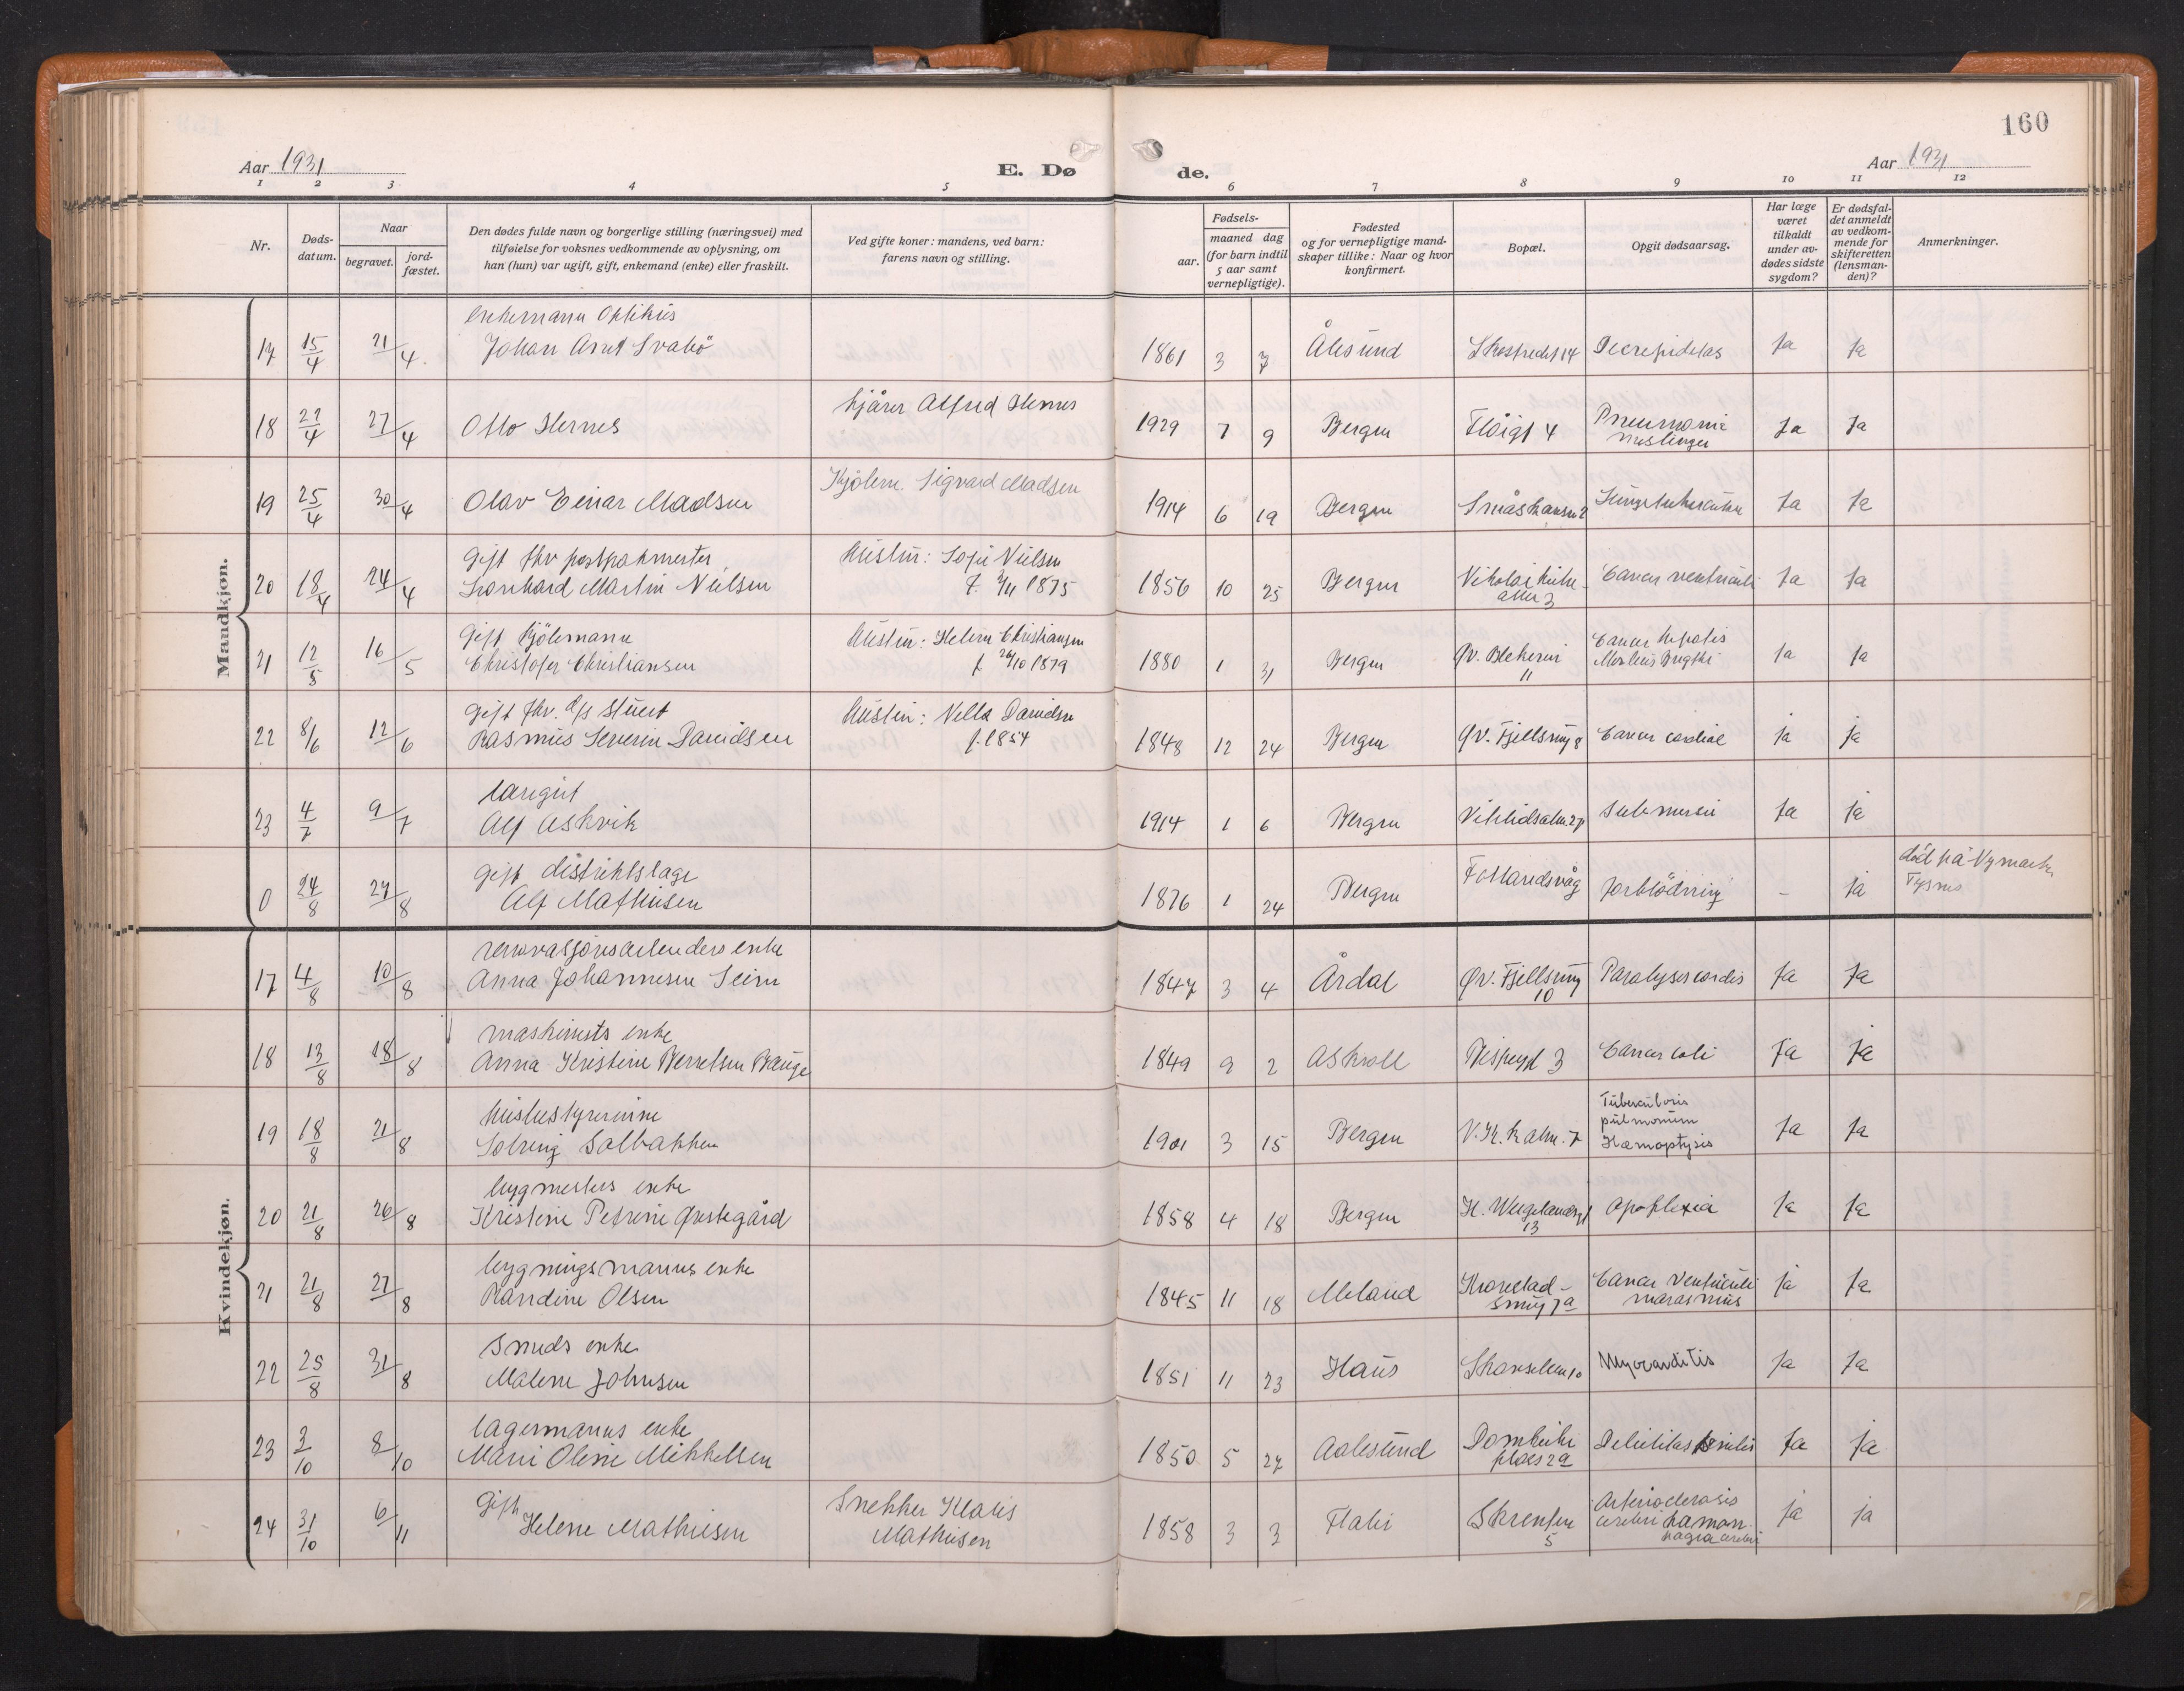 160
Aar 1931
E. Dø
de.
Aar 1931
1 2 3 4 5 6 7 8 9 10 11 12
Nr.
Døds-
datum.
Naar
begravet.
jord-
fæstet.
Den dødes fulde navn og borgerlige stilling (næringsvei) med
tilføielse for voksnes vedkommende av oplysning, om
han (hun) var ugift, gift, enkemand (enke) eller fraskilt.
Ved gifte koner: mandens, ved barn:
farens navn og stilling.
Fødsels-
aar.
maaned dag
(for barn indtil
5 aar samt
vernepligtige).
Fødested
og for vernepligtige mand-
skaper tillike: Naar og hvor
konfirmert.
Bopæl.
Opgit dødsaarsag.
Har læge
været
tilkaldt
under av-
dødes sidste
sygdom?
Er dødsfal-
det anmeldt
av vedkom-
mende for
skifteretten
(lensman-
den)?
Anmerkninger.
Mandkjøn.
enkemann Optikus
17 15/4 21/4 Johan Arnt Svabö 1861 3 7 Ålesund Decrepiditas Ja Ja
Kjårer Alfred Hernes
18 22/4 27/4 Otto Hernes 1929 7 9 Bergen Fløigt 4 Pneumonia Ja Ja
meslinger
Kjölem. Sigvard Madsen
19 25/4 30/4 Olav Einar Madsen 1914 6 19 Bergen Småskansen 2 Lungetuberculose Ja Ja
Gift fhv postpakmester Hustru: Sofie Nielsen
20 18/4 24/4 Leonhard Martin Nielsen f. 2/11 1875 1856 10 25 Bergen Nikolaikirke- Cancer ventriculi Ja Ja
allm 3
Gift Kjölemann Hustru: Helene Christiansen Cancer hepatis
21 12/5 16/5 Christofer Christiansen f 26/10 1879 1880 1 31 Bergen Øv. Blekevei Morbus Brigthi Ja Ja
11
Gift fhv. d/s stuert Hustru: Nella Davidsen
22 8/6 12/6 Rasmus Severin Davidsen f. 1854 1848 12 24 Bergen Øv. Fjellsmug 8 Cancer cardiae ja ja
læregut
23 4/7 9/7 Alf Askvik 1914 1 6 Bergen Vitalidsalm. 27 Submersio Ja ja
gift distriktslæge død på
0 24/8 27/8 Alf Mathiesen 1876 1 24 Bergen Follandsvåg forblødning - ja Tysnes
Kvindekjøn.
renovasjonsarbeiders enke
17 4/8 10/8 Anna Johannesen Seim 1847 3 4 Årdal Øv. Fjellsmug Paralysis cordis Ja Ja
10
maskinists enke
18 13/8 18/8 Anna Kristine Berntsen Bauge 1849 9 2 Askvoll Bispegt 3 Cancer coli Ja Ja
husbestyrerinne Tuberculosis
19 18/8 21/8 Solveig Solbakken 1901 3 15 Bergen pulmonum Ja Ja
Hæmoptysis
bygmesters enke
20 21/8 26/8 Kristine Petrine Østegård 1858 4 18 Bergen H. Wergelandsgt Apoplexia Ja Ja
13
bygningsmanns enke
21 21/8 27/8 Randine Olsen 1845 11 18 Meland Kronstad- Cancer Ventriculi ja Ja
smug 7a marasmus
Smeds enke
22 25/8 31/8 Malene Johnsen 1851 11 23 Haus Skanselien 10 Myocarditis Ja Ja
lagermanns enke
23 3/10 8/10 Marie Oline Mikkelsen 1850 5 27 Aalesund Domkirke Debilitas senilis Ja Ja
plads 2a
Gift Snekker Klaus Arteriosclerosis
24 31/10 6/11 Helene Mathiesen Mathiesen 1858 3 3 Skrenten cerebri hæmorr- ja ja
5 hagia cerebri